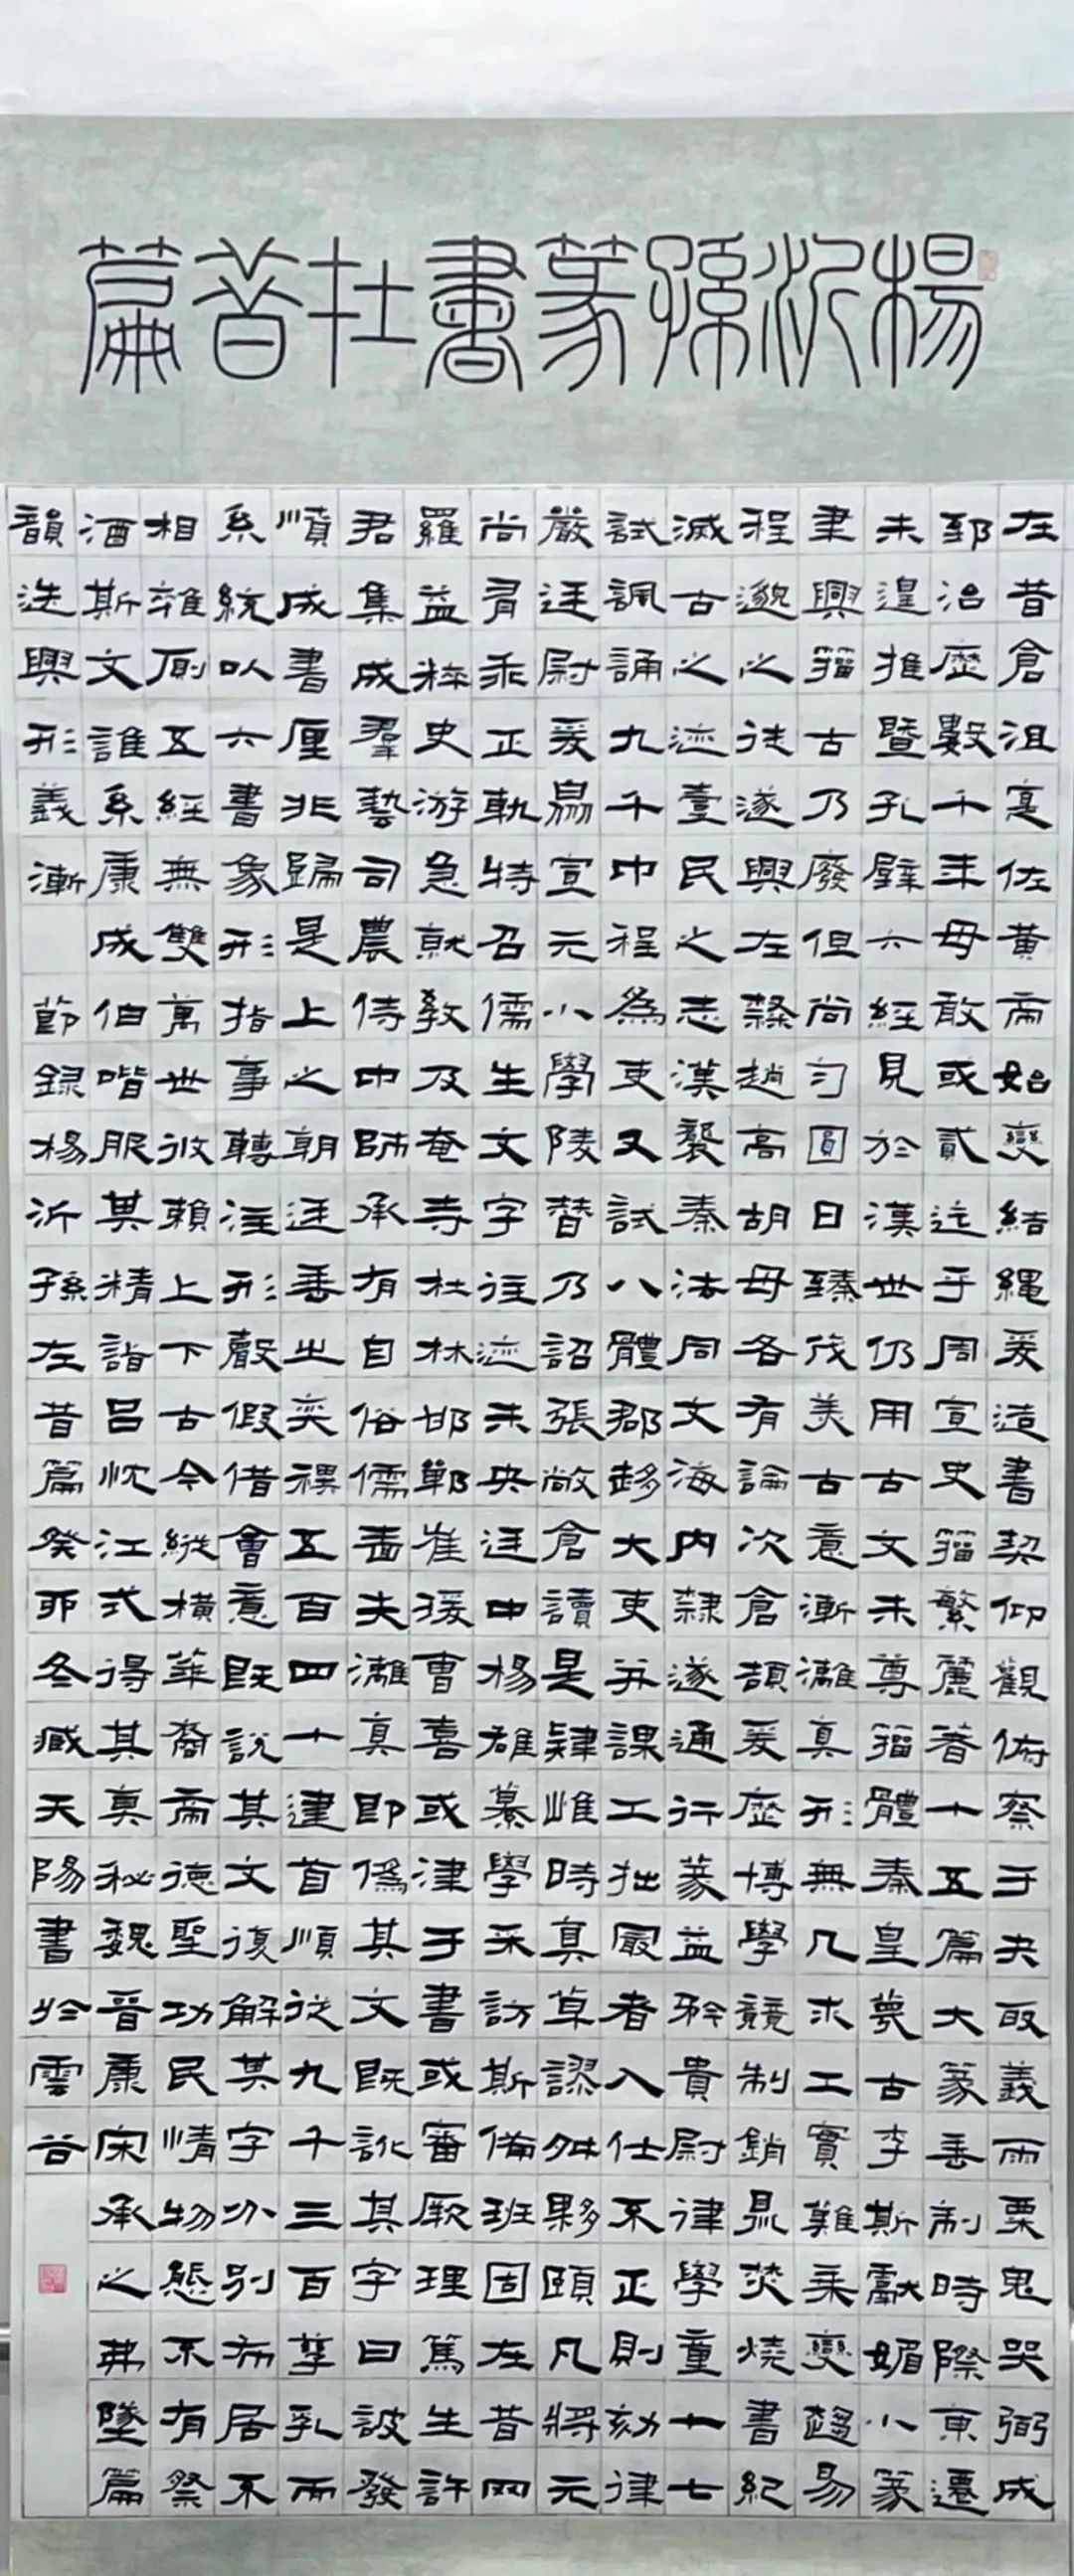 楊沂孫篆書在昔篇
在昔倉沮寔佐黃帝始變結繩爰造書契仰觀俯察于夬取義雨粟鬼哭弼成
郅治歷數千年毋敢或貳迄于周宣史籀繁麗著十五篇大篆垂制時際東遷
未遑推暨孔壁六經見於漢世仍用古文未尊籀體秦皇蔑古李斯獻媚小篆
聿興籀古乃廢但尚勻圓日臻茂美古意漸漓真形無几求工實難乘變趨易
程邈之徒遂興左隸趙高胡毋各有論次倉頡爰歷博學競制銷鼎焚燒書紀
滅古之迹壹民之志漢襲秦法同文海內隸遂通行篆益矜貴尉律學童十七
試諷誦九千中程為吏又試八體郡移大吏并課工拙冣者入仕不正則劾律
嚴廷尉爰曷宣元小學陵替乃詔張敞倉讀是肄惟時真草謬舛夥頤凡將元
尚有乖正軌特召儒生文字往迹未央廷中楊雄纂學采訪斯備班固在昔网
羅益粹史游急就教及奄寺杜林邯鄲崔瑗曹喜或津于書或審厥理篤生許
君集成羣藝司農侍中師承有自俗儒嗇夫漓真即偽其文既訛其字曰詖發
憤成書厘非歸是上之朝廷垂世奕禩五百四十建首順從九千三百孳乳而
系統以六書象形指事轉注形聲假借會意既說其文復解其字分別布居不
相雜廁五經無雙萬世攸賴上下古今縱橫華裔帝德聖功民情物態不有祭
酒斯文誰系康成伯喈服其精詣呂忱江式得其真秘魏晉康宋承之弗墜篇
韻迭興形義漸 節録楊沂孫在昔篇癸卯冬臧天陽書於雲谷